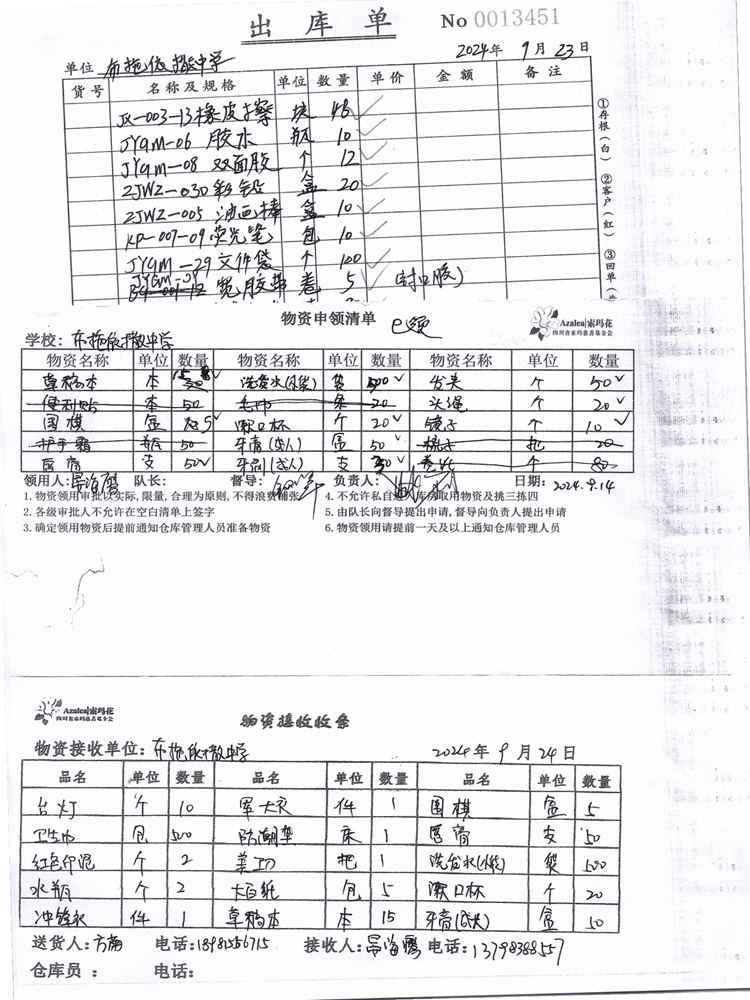 出库单 No 0013451
单位 布拖依撒中学 2024年 9月 23日
货号 名称及规格 单位 数量 单价 金额 备注
JX-003-13 橡皮擦 块 48 ✓
JYGM-06 胶水 瓶 10 ✓
JYGM-08 双面胶 个 12 ✓
ZJWZ-030 彩铅 盒 20 ✓
ZJWZ-005 油画棒 盒 10 ✓
KP-007-09 荧光笔 包 10 ✓
JYGM-29 文件袋 个 100 ✓
宽胶带 卷 5 (封口胶)
①存根(白) ②客户(红) ③回单
物资申领清单
Azalea|索玛花
四川省索玛慈善基金会
学校: 布拖依撒中学
物资名称 单位 数量 物资名称 单位 数量 物资名称 单位 数量
草稿本 本 15 洗发水(小袋) 袋 500 ✓ 发夹 个 50 ✓
便利贴 本 50 毛巾 条 20 头绳 个 20 ✓
围棋 盒 5 ✓ 漱口杯 个 20 ✓ 镜子 个 10 ✓
护手霜 瓶 50 牙膏(成人) 盒 50 ✓ 梳子 把 20
唇膏 支 50 ✓ 牙刷(成人) 支 50 ✓ 个
领用人: 队长: 督导: 负责人: 日期: 2024.9.14
1. 物资领用审批以实际, 限量, 合理为原则, 不得浪费铺张 4. 不允许私自进入库房取用物资及挑三拣四
2. 各级审批人不允许在空白清单上签字 5. 由队长向督导提出申请, 督导向负责人提出申请
3. 确定领用物资后提前通知仓库管理人员准备物资 6. 物资领用请提前一天及以上通知仓库管理人员
Azalea|索玛花
四川省索玛慈善基金会
物资接收收条
物资接收单位: 布拖依撒中学 2024年 9月 24日
品名 单位 数量 品名 单位 数量 品名 单位 数量
台灯 个 10 军大衣 件 1 围棋 盒 5
卫生巾 包 500 防潮垫 床 1 唇膏 支 50
红色印泥 个 2 美工刀 把 1 洗发水(小袋) 袋 500
水瓶 个 2 大白纸 包 5 漱口杯 个 20
冲锋衣 件 1 草稿本 本 15 牙膏(成人) 盒 50
送货人: 方 电话: 18981556715 接收人: 电话: 13798388557
仓库员 : 电话: